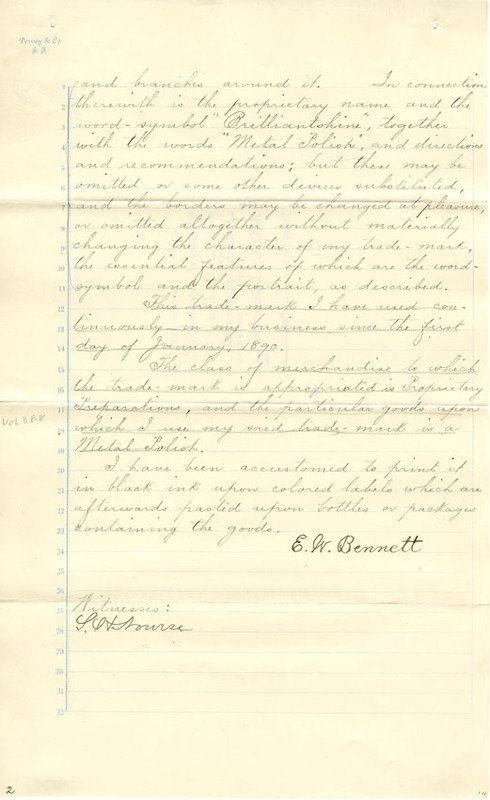 Dewey & Co.
S. F.
1 and branches around it. In connection
2 therewith is the proprietary name and the
3 word-symbol "Brilliantshine", together
4 with the words "Metal Polish", and directions
5 and recommendations; but these may be
6 omitted or some other devices substituted,
7 and the borders may be changed at pleasure,
8 or omitted altogether without materially
9 changing the character of my trade-mark,
10 the essential features of which are the word-
11 symbol and the portrait, as described.
12 This trade-mark I have used con-
13 tinuously in my business since the first
14 day of January, 1890.
15 The class of merchandise to which
16 the trade-mark is appropriated is Proprietary
17 Preparations, and the particular goods upon
Vol 3 P. 8
18 which I use my said trade-mark is a
19 Metal Polish.
20 I have been accustomed to print it
21 in black ink upon colored labels which are
22 afterwards pasted upon bottles or packages
23 containing the goods.
24 E. W. Bennett
25
26
27 Witnesses:
28 Nourse
29
30
31
32
2